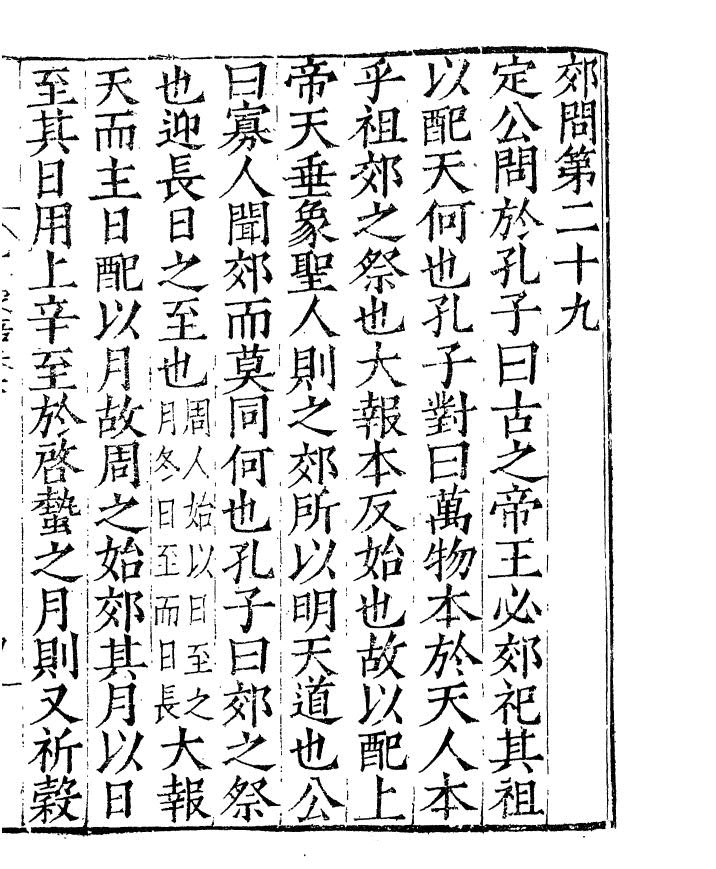 郊問第二十九
定公問於孔子曰古之帝王必郊祀其祖
以配天何也孔子對曰萬物本於天人本
乎祖郊之祭也大報本反始也故以配上
帝天垂象聖人則之郊所以明天道也公
曰寡人聞郊而莫同何也孔子曰郊之祭
也迎長日之至也周人始以日至之月冬日至而日長大報
天而主日配以月故周之始郊其月以日
至其日用上辛至於啓蟄之月則又祈穀